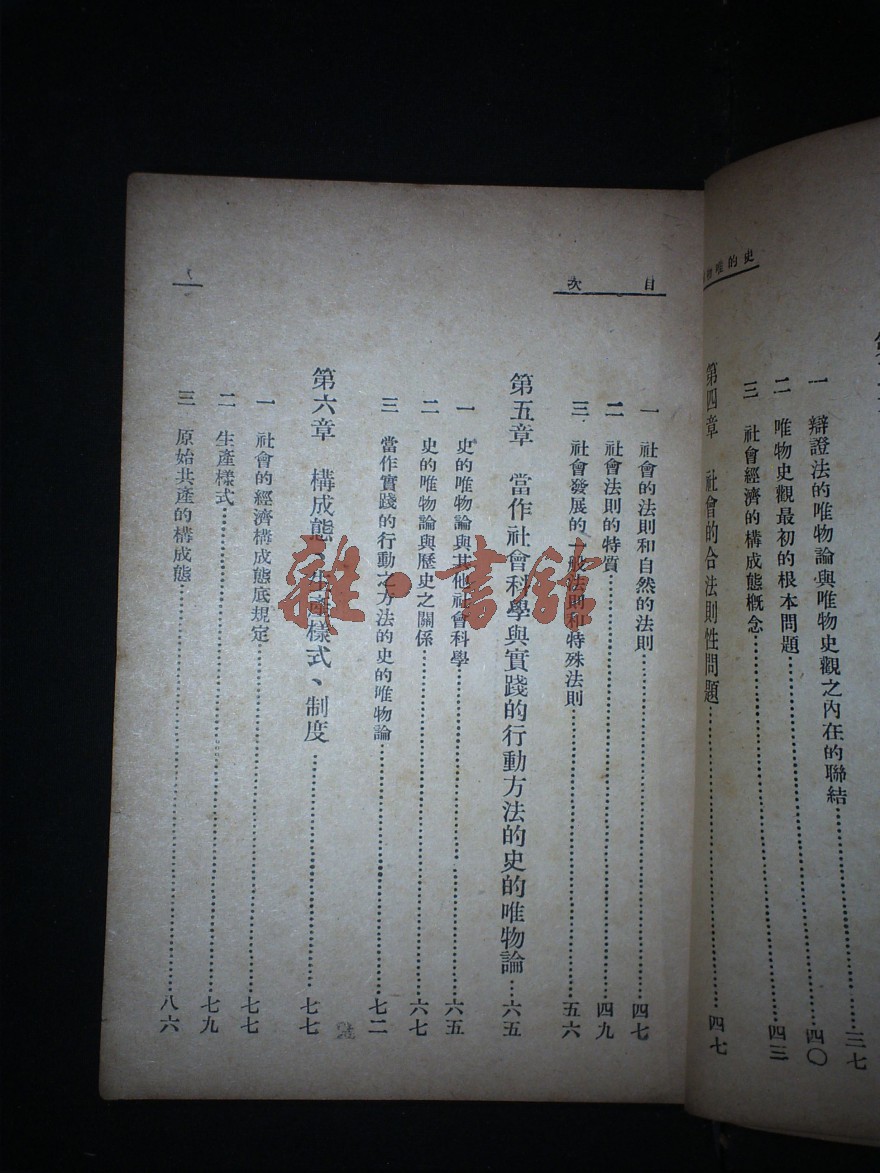 史的唯物
一　辯證法的唯物論與唯物史觀之內在的聯結……三七
二　唯物史觀最初的根本問題……四〇
三　社會經濟的構成態概念……四三
第四章　社會的合法則性問題……四七
目次
一　社會的法則和自然的法則……四七
二　社會法則的特質……四九
三　社會發展的一般法則和特殊法則……五六
第五章　當作社會科學與實踐的行動方法的史的唯物論…六五
一　史的唯物論與其他社會科學……六五
二　史的唯物論與歷史之關係……六七
三　當作實踐的行動之方法的史的唯物論……七二
第六章　構成態、生產樣式、制度……七七
一　社會的經濟構成態底規定……七七
二　生產樣式……七九
三　原始共產的構成態……八六
雜·書館